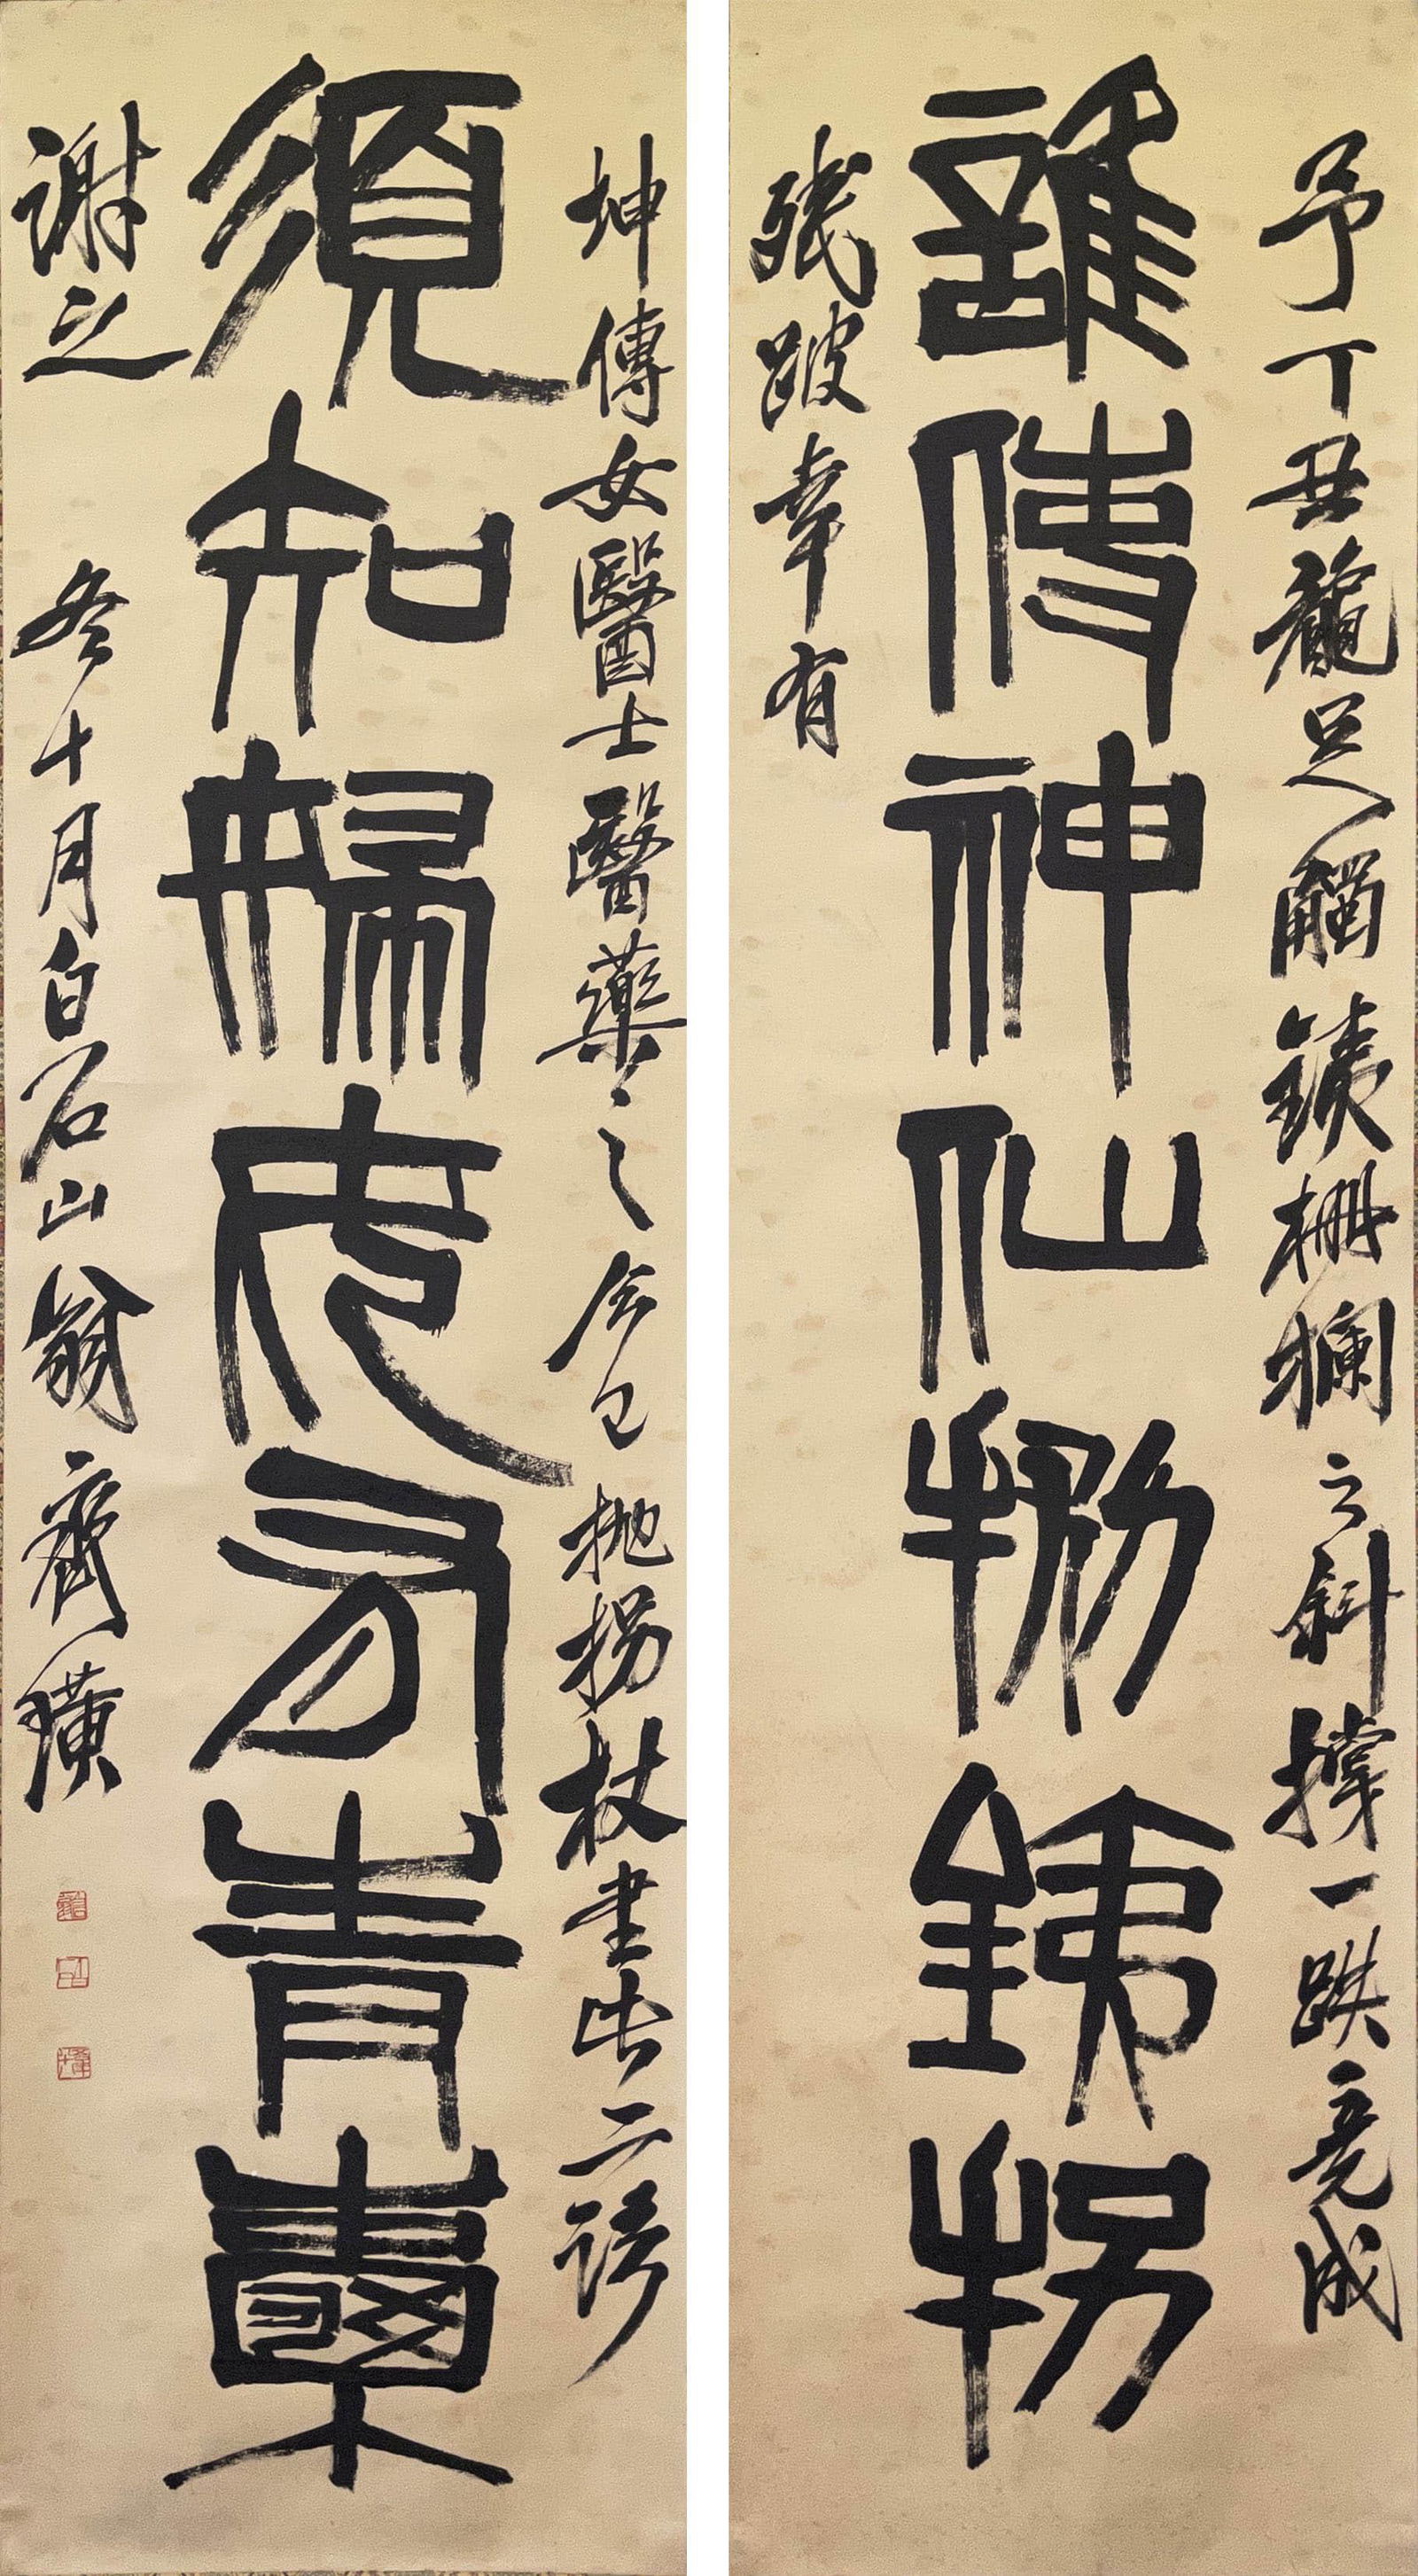 予丁丑足觸鐵柵欄之斜撐一跌竟成
誰使神仙拋鐵拐
殘跛幸有
坤傳女醫士醫藥之今已拋拐杖書此二語
須知婦有青囊
謝之 冬十月白石山翁齊璜